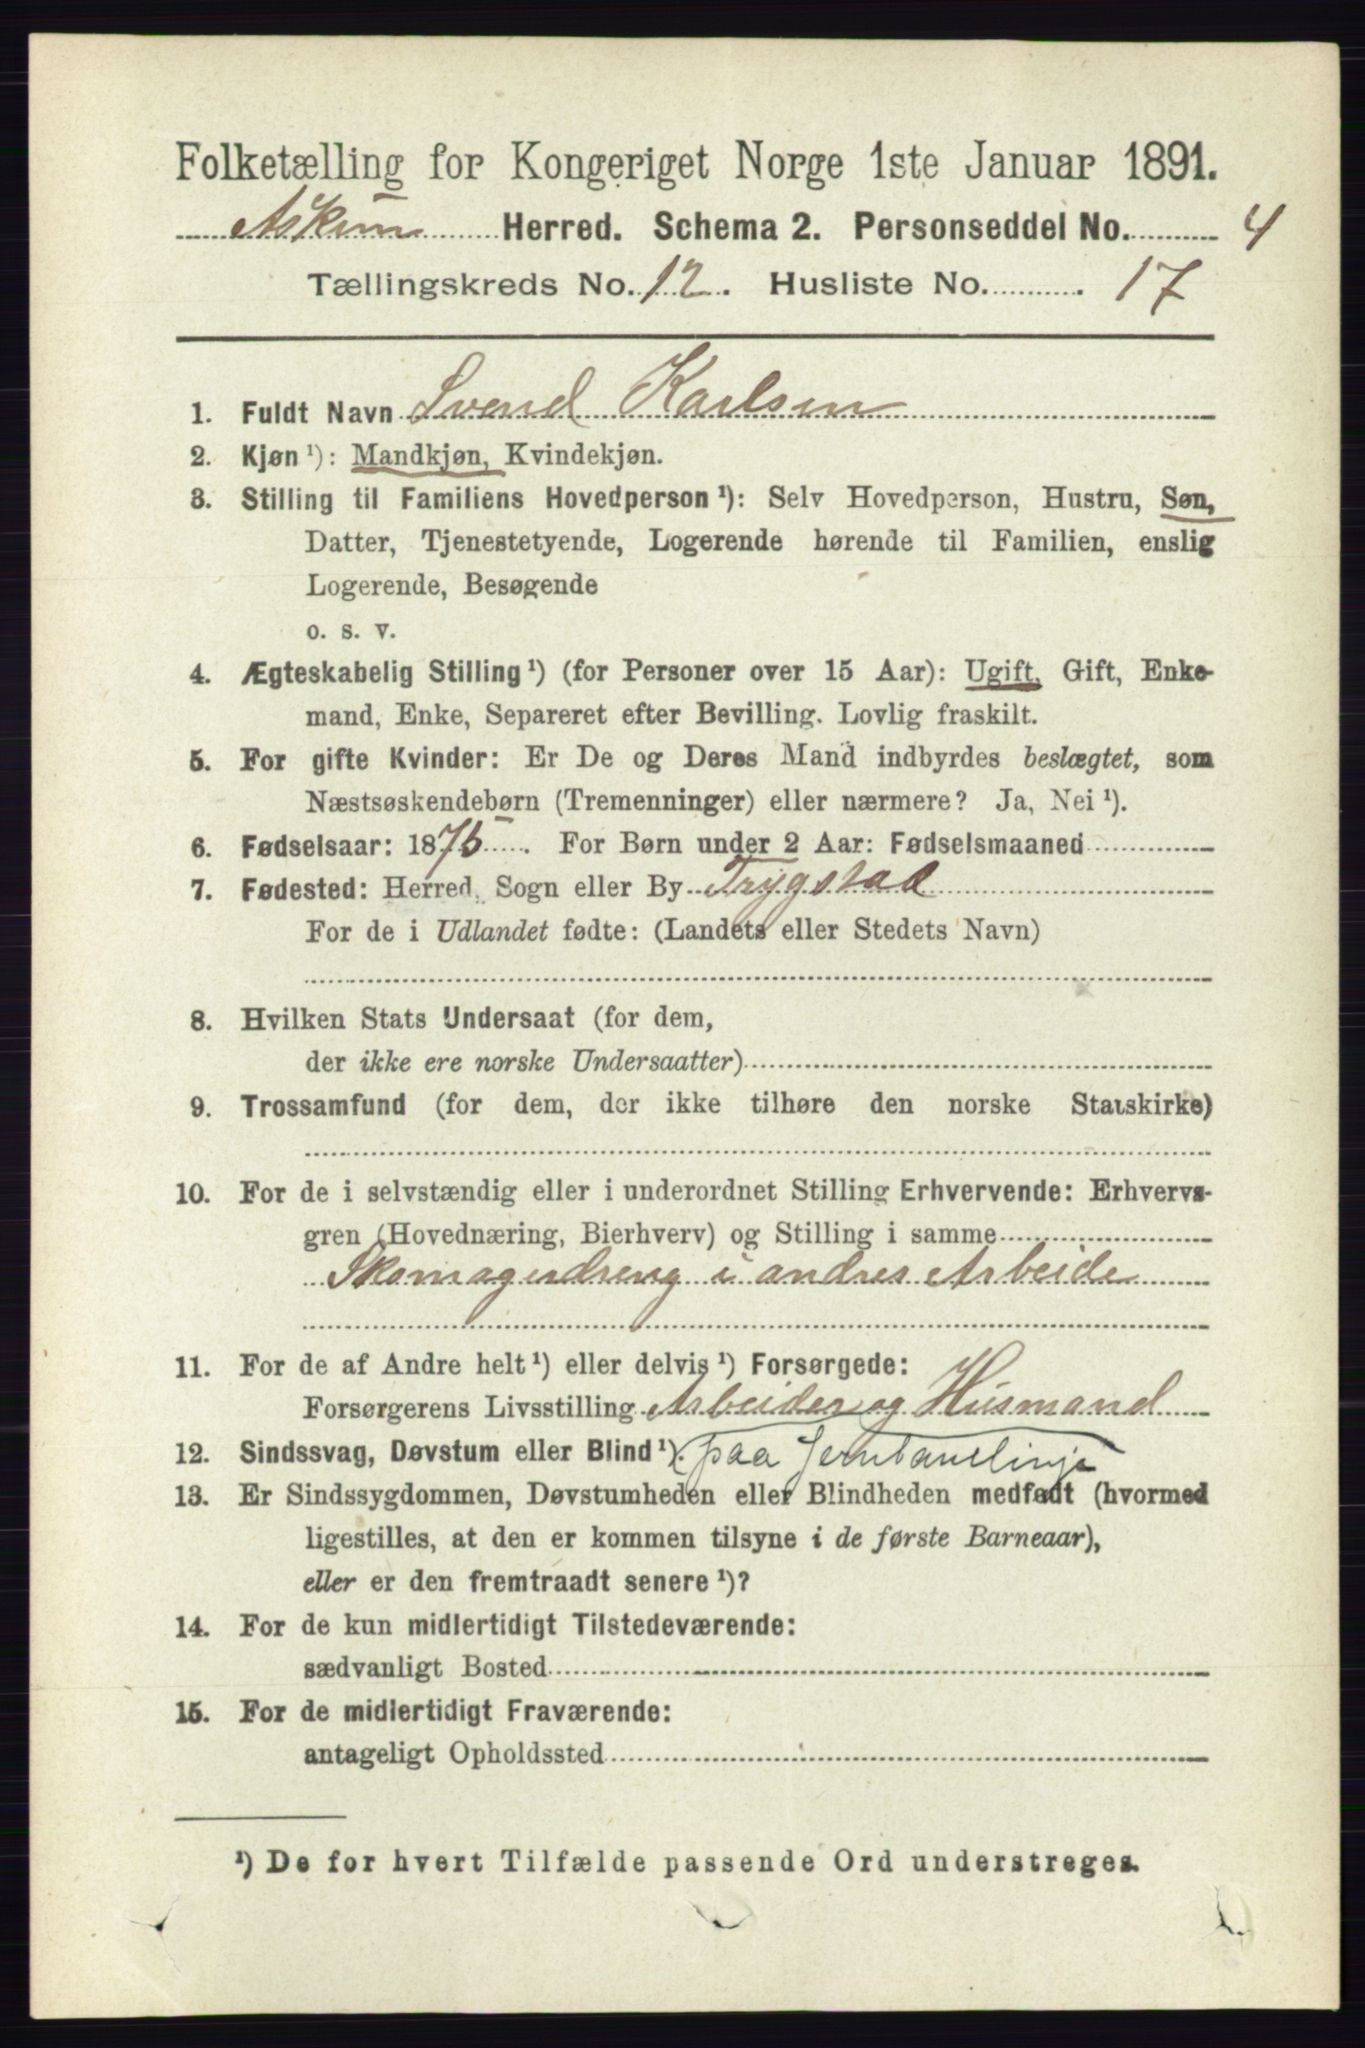 Folketælling for Kongeriget Norge 1ste Januar 1891.
Askim Herred. Schema 2. Personseddel No. 4
Tællingskreds No. 12. Husliste No. 17
1. Fuldt Navn Svend Karlsen
2. Kjøn ¹): Mandkjøn, Kvindekjøn.
3. Stilling til Familiens Hovedperson ¹): Selv Hovedperson, Hustru, Søn,
Datter, Tjenestetyende, Logerende hørende til Familien, enslig
Logerende, Besøgende
o. s. v.
4. Ægteskabelig Stilling ¹) (for Personer over 15 Aar): Ugift, Gift, Enke-
mand, Enke, Separeret efter Bevilling. Lovlig fraskilt.
5. For gifte Kvinder: Er De og Deres Mand indbyrdes beslægtet, som
Næstsøskendebørn (Tremenninger) eller nærmere? Ja, Nei ¹).
6. Fødselsaar: 1875. For Børn under 2 Aar: Fødselsmaaned
7. Fødested: Herred, Sogn eller By Trygstad
For de i Udlandet fødte: (Landets eller Stedets Navn)
8. Hvilken Stats Undersaat (for dem,
der ikke ere norske Undersaatter)
9. Trossamfund (for dem, der ikke tilhøre den norske Statskirke)
10. For de i selvstændig eller i underordnet Stilling Erhvervende: Erhvervs-
gren (Hovednæring, Bierhverv) og Stilling i samme
Skomagerdreng i andres Arbeide
11. For de af Andre helt ¹) eller delvis ¹) Forsørgede:
Forsørgerens Livsstilling Arbeider og Husmand
12. Sindssvag, Døvstum eller Blind ¹). (paa Jernbanelinje
13. Er Sindssygdommen, Døvstumheden eller Blindheden medfødt (hvormed
ligestilles, at den er kommen tilsyne i de første Barneaar),
eller er den fremtraadt senere ¹)?
14. For de kun midlertidigt Tilstedeværende:
sædvanligt Bosted
15. For de midlertidigt Fraværende:
antageligt Opholdssted
¹) De for hvert Tilfælde passende Ord understreges.